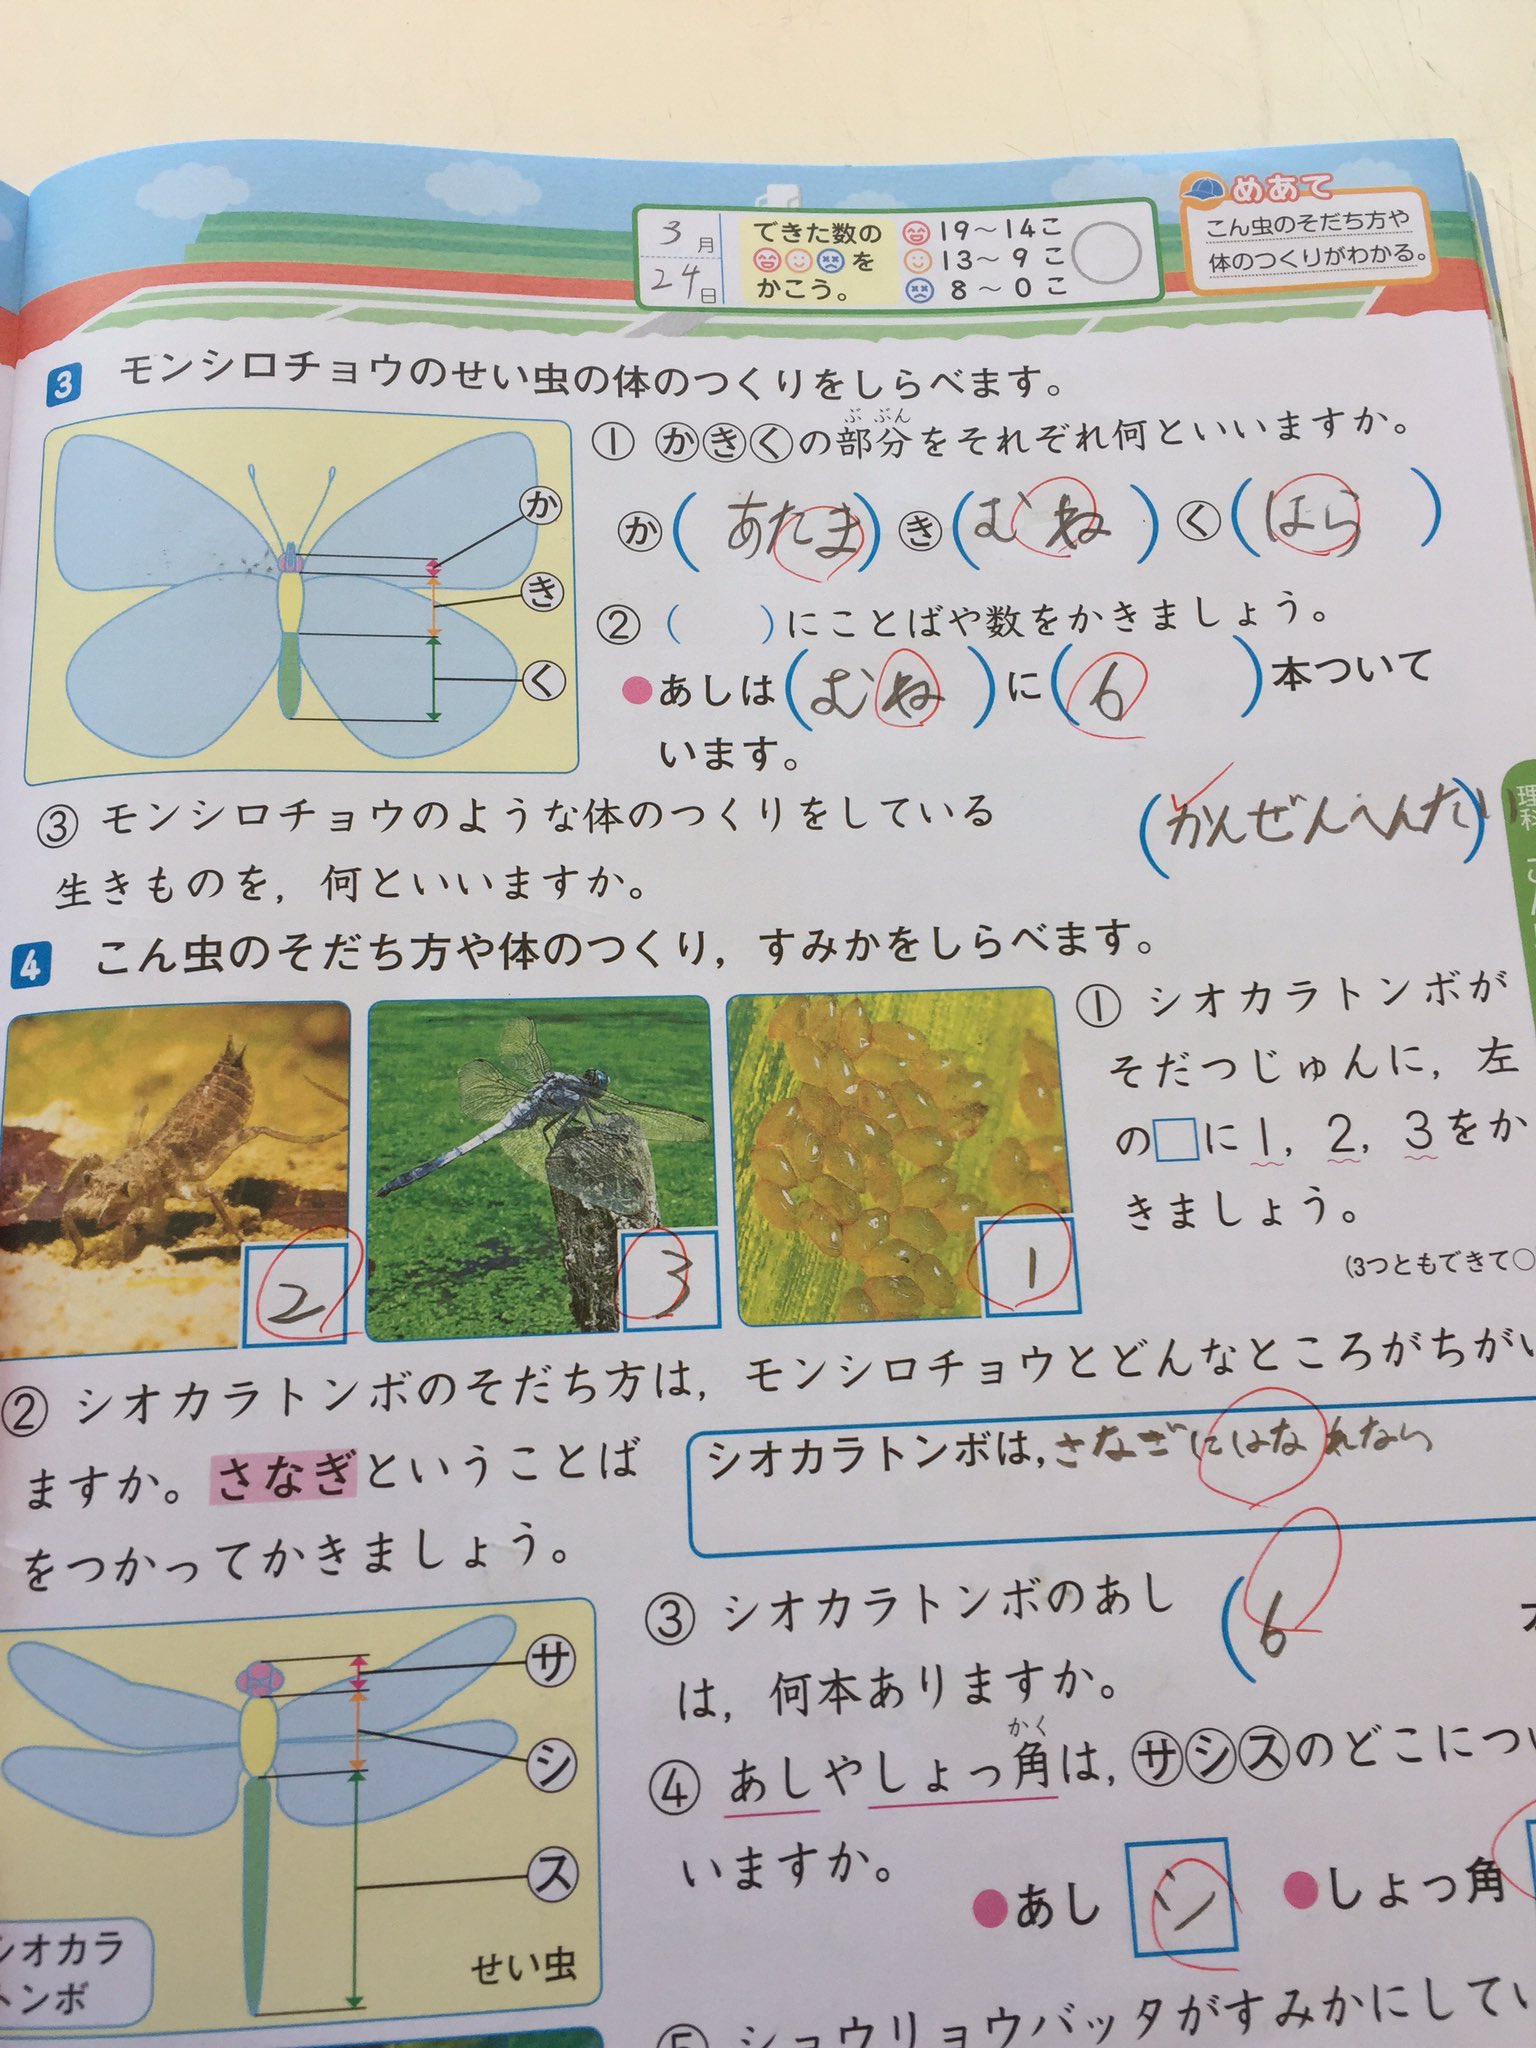 3月
24日
できた数の
を
かこう。
19〜14こ
13〜 9 こ
8〜0 こ
めあて
こん虫のそだち方や
体のつくりがわかる。
3 モンシロチョウのせい虫の体のつくりをしらべます。
か
き
く
① かきくの部分をそれぞれ何といいますか。
ぶ ぶん
か(あたま) き(むね) く(はら)
② ( )にことばや数をかきましょう。
●あしは(むね)に(6)本ついて
います。
③ モンシロチョウのような体のつくりをしている
生きものを,何といいますか。
(かんぜんへんたい)
理科
4 こん虫のそだち方や体のつくり,すみかをしらべます。
2
3
1
① シオカラトンボが
そだつじゅんに,左
の□に1,2,3をか
きましょう。
(3つともできて○
② シオカラトンボのそだち方は,モンシロチョウとどんなところがちがい
ますか。さなぎということば
をつかってかきましょう。
シオカラトンボは,さなぎにはなれなら
③ シオカラトンボのあし
は,何本ありますか。
(6
④ あしやしょっ角は,サシスのどこについ
かく
いますか。
●あし シ ●しょっ角
サ
シ
ス
せい虫
シオカラ
トンボ
⑤ ショウリョウバッタがすみかにしてい